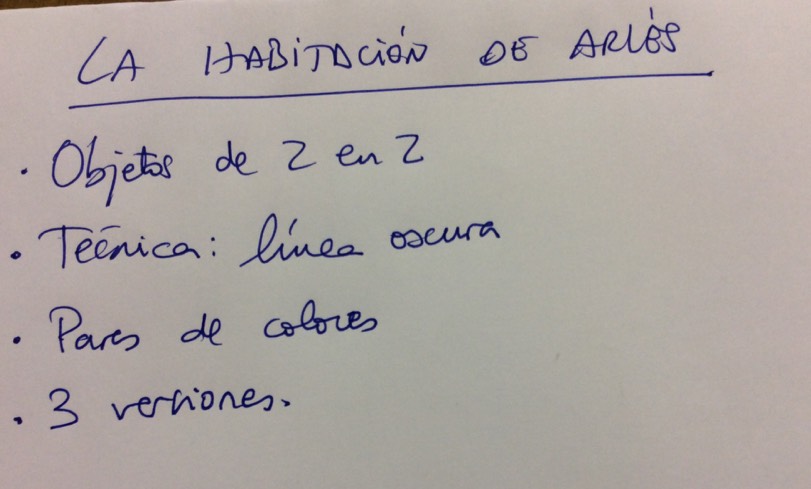 LA HABITACIÓN DE ARLÉS
· Objetos de 2 en 2
· Técnica: línea oscura
· Pares de colores
· 3 versiones.